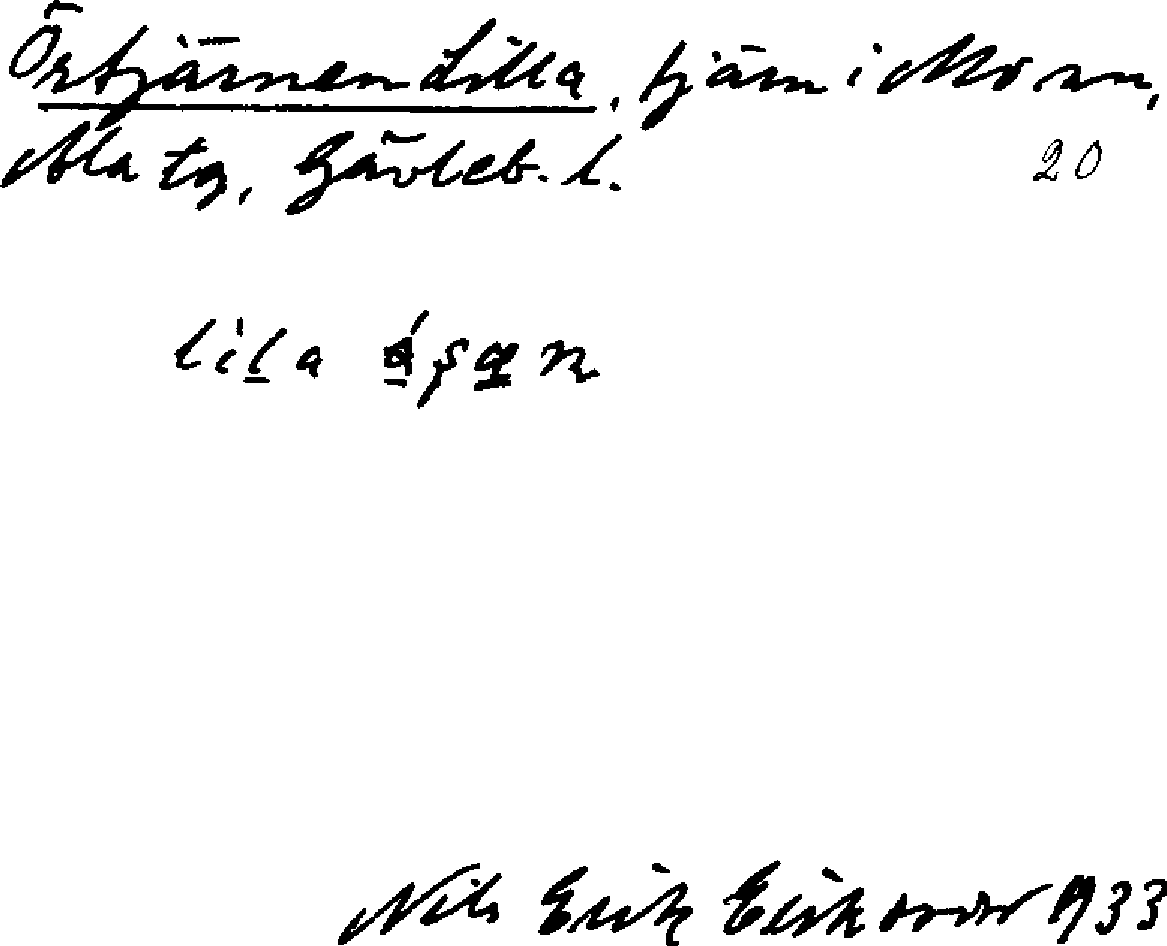 Örtjärnen Lilla, tjärn i Mo sn,
Ala tg, Gävleb. l.
20
lila
Nils Erik Eriksson 1933